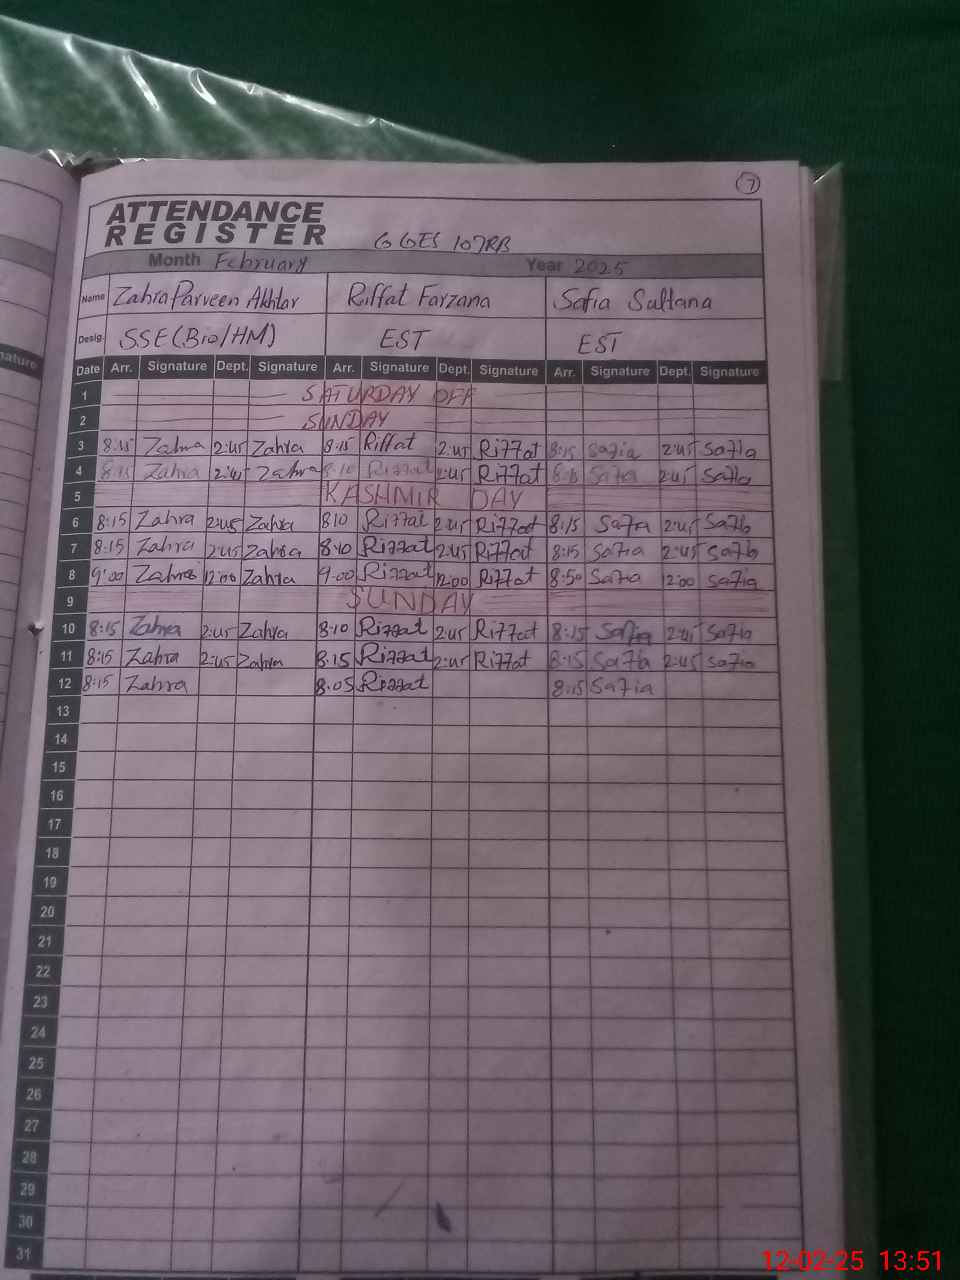 7
ATTENDANCE
REGISTER GGES 107RB
Month February Year 2025
Name Zahra Parveen Akhtar Riffat Farzana Safia Sultana
Desig. SSE(Bio/HM) EST EST
Date Arr. Signature Dept. Signature Arr. Signature Dept. Signature Arr. Signature Dept. Signature
1 SATURDAY OFF
2 SUNDAY
3 8:15 Zahra 2:45 Zahra 8:15 Riffat 2:45 Riffat 8:15 Safia 2:45 Safia
4 8:15 Zahra 2:45 Zahra 8:10 Riffat 2:45 Riffat Safia 2:45 Safia
5 KASHMIR DAY
6 8:15 Zahra 2:45 Zahra 810 Riffat 2:45 Riffat 8:15 Safia 2:45 Safia
7 8:15 Zahra 2:45 Zahra 8:10 Riffat 2:45 Riffat 8:15 Safia 2:45 Safia
8 9:00 Zahra 12:00 Zahra 9:00 Riffat 12:00 Riffat 8:50 Safia 12:00 Safia
9 SUNDAY
10 8:15 Zahra 2:45 Zahra 8:10 Riffat 2:45 Riffat 8:15 Safia 2:45 Safia
11 8:15 Zahra 2:45 Zahra 8:15 Riffat 2:45 Riffat 8:15 Safia 2:45 Safia
12 8:15 Zahra 8:05 Riffat 8:15 Safia
13
14
15
16
17
18
19
20
21
22
23
24
25
26
27
28
29
30
31
12-02-25 13:51